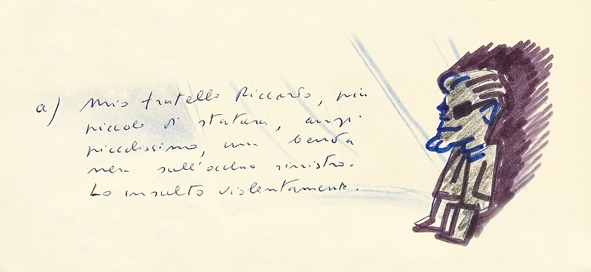 a) Mio fratello Riccardo, più
piccolo di statura, anzi
piccolissimo, una benda
nera sull'occhio sinistro.
Lo insulto violentemente.